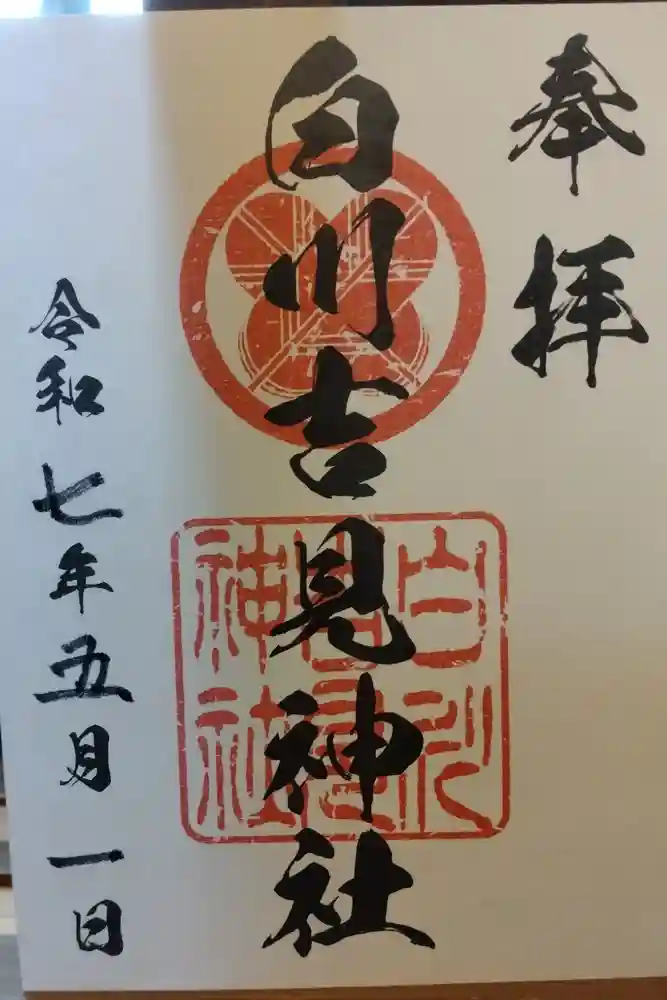 奉拝
白川吉見神社
白川吉見神社
令和七年五月一日